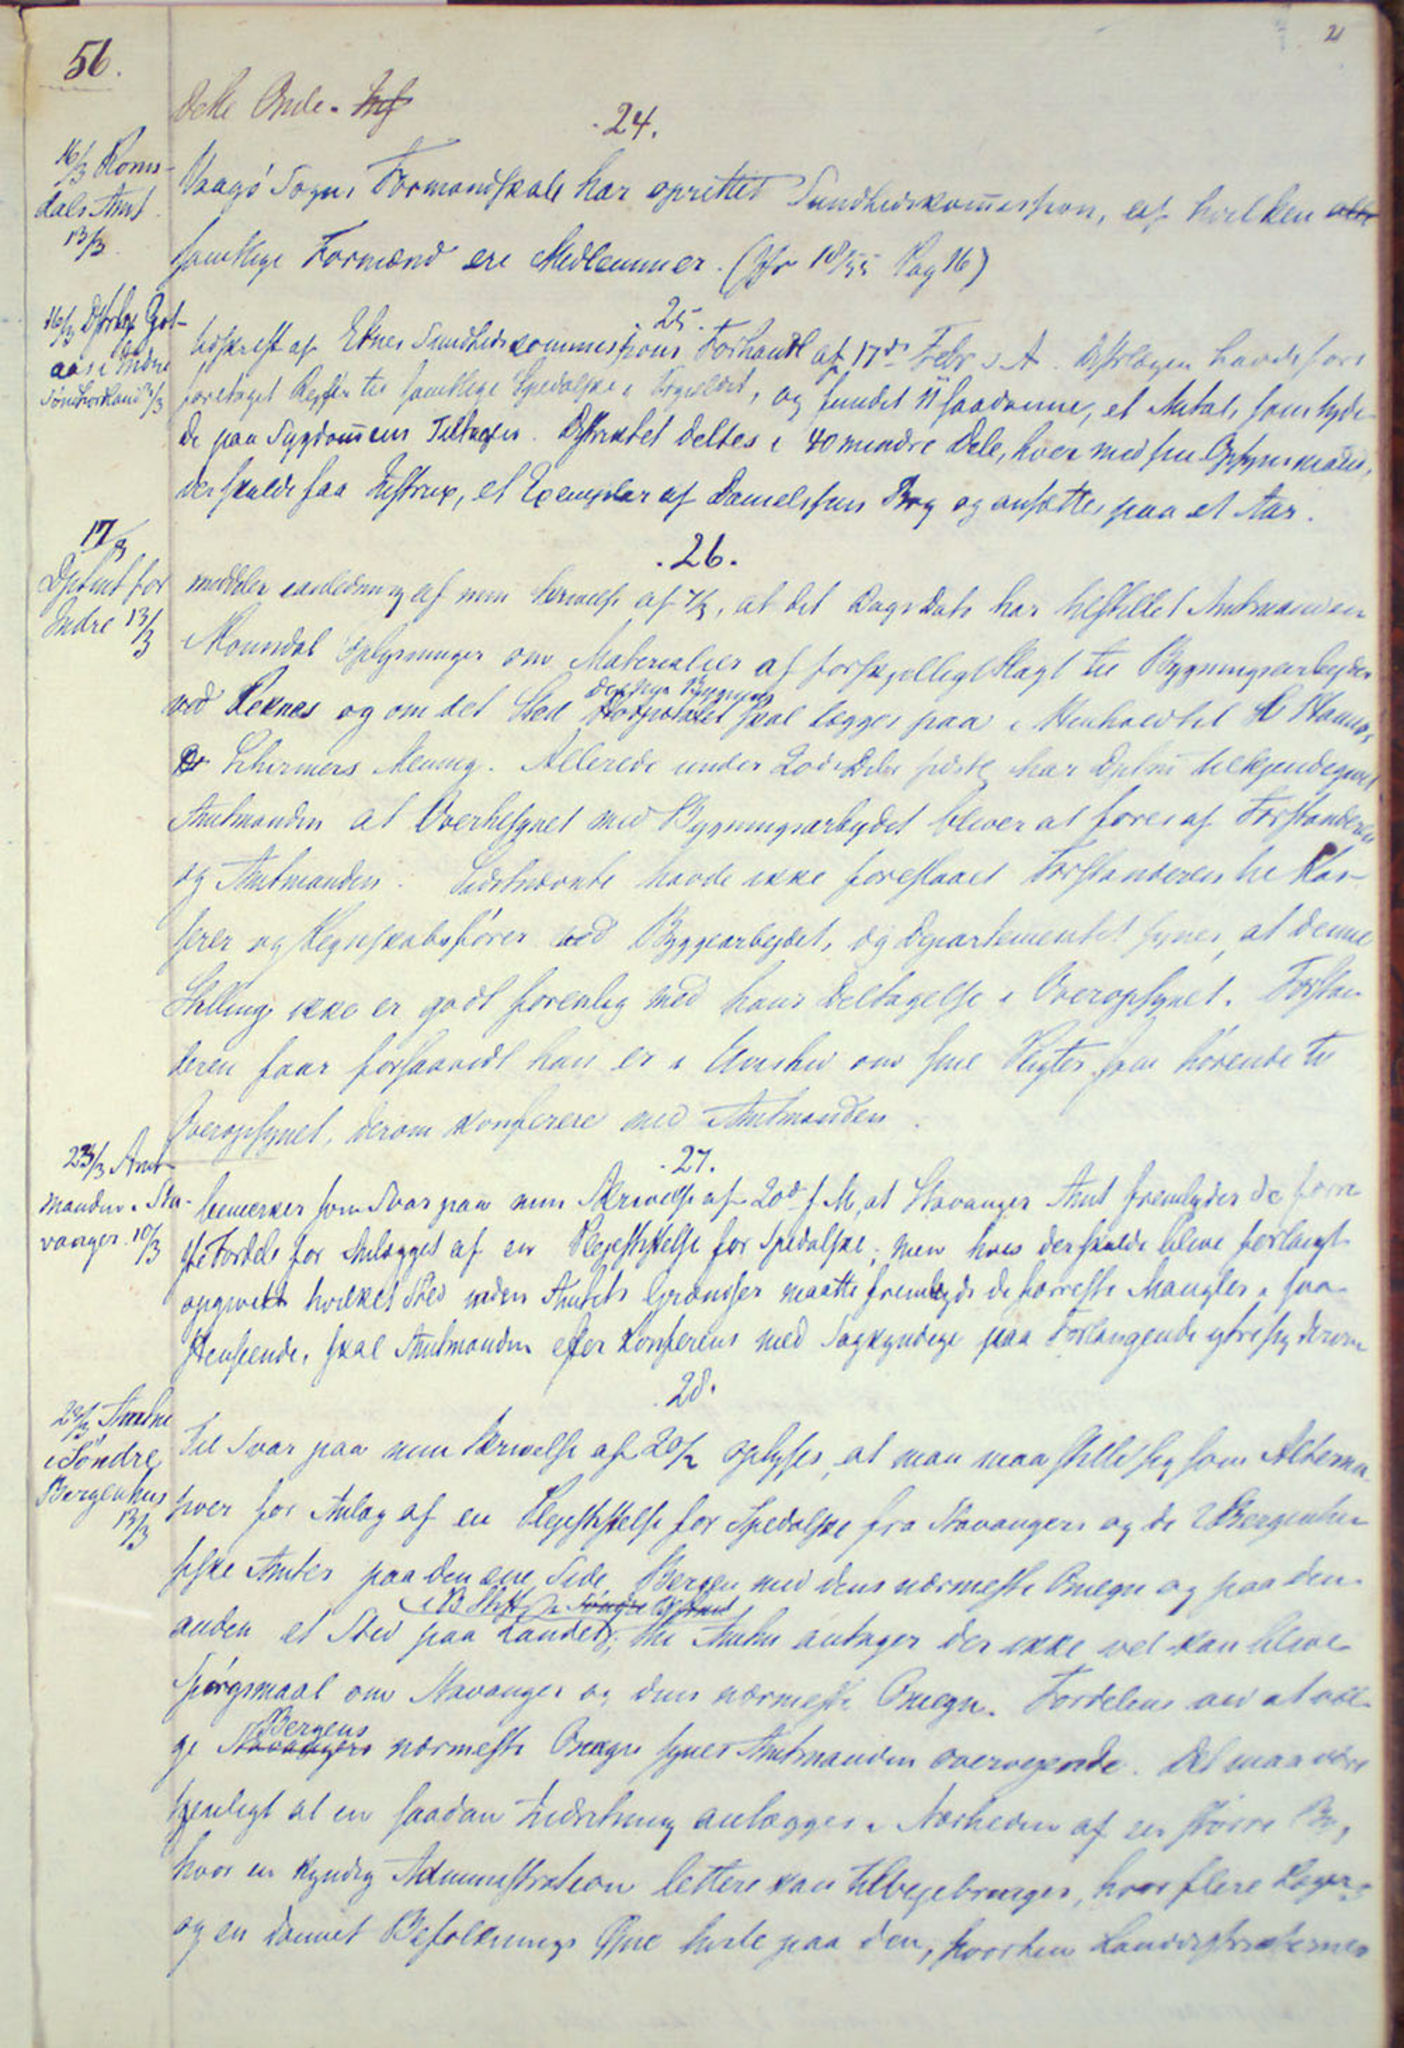 56.
2
Dette Onde.
24.
16/3 Roms-
dals Amt.
13/3
Vaagø Sogns Formandskab har oprettet Sundhedskommission, af hvilken alle
samtlige Formænd ere Medlemmer. (Jfr 18/55 Pag 16)
25.
16/3 Distrlæg
aas i Indre
Søndhordland
Udskrift af Etnes Sundhedskommissions Forhandl af 17de Febr d. A. Distrlægen havde fore
foretaget Rejser til samtlige Spedalske i Prgjeldet, og fundet 11 saadanne, et Antal, som tyde
de paa Sygdommens Tiltagen. Distriktet deltes i 40 mindre Dele, hver med sin Opsynsmand,
der skulde faa Instrux, et Exemplar af Danielsens Bog og ansættes paa et Aar.
26.
17/3
Dptmt for
Indre 13/3
meddeler i anledning af min Skrivelse af 7/3, at det Dags Dato har tilstillet Amtmanden
i Romsdal Oplysninger om Materialier af forskjelligt Slagt til Bygningsarbejdet
den nye Bygning
ved Reknes og om det Sted Hospitalet skal lægges paa i Henhold til Hr
Schirmers Mening. Allerede under 20de Dcbr sidstl. har Dptm tilkjendegivet
Amtmanden at Overtilsynet med Bygningsarbejdet bliver at føres af Forstanderen
og Amtmanden. Sidstnævnte havde ikke foreslaaet Forstanderen til Kas-
serer og Regnskabsfører ved Byggearbejdet, og Departementet synes, at denne
Stilling ikke er godt forenlig med hans Deltagelse i Overopsynet. Forstan
deren faar forsaavidt han er i Uvished om sine Pligter som hørende til
Overopsynet, derom konferere med Amtmanden.
27.
23/3 Amt-
manden i Sta-
vanger 10/3
bemærker som Svar paa min Skrivelse af 20de f. M, at Stavanger Amt frembyder de færre
ste Fordele for Anlægget af en Plejestiftelse for Spedalske; men hvis der skulde blive forlangt
opgivet hvilket Sted inden Amtets Grændser maatte frembyde de færreste Mangler i saa
Henseende, skal Amtmanden efter Konferens med Sagkyndige paa Forlangende ytre sig derom
28.
23/3 Amtm
i Søndre
Bergenhus
13/3
Til Svar paa min Skrivelse af 20/2 oplyses, at man maa stille sig som Alterna
tiver for Anlæg af en Plejestiftelse for Spedalske fra Stavangers og de 2 Bergenhu
siske Amter paa den ene Side Bergen med dens nærmeste Omegn og paa den
i B Stift
anden et Sted paa Landet; thi Amtm antager der ikke vel kan blive
Spørgsmaal om Stavanger og dens nærmeste Omegn. Fordelene ved at væl-
Bergens
ge Stavangers nærmeste Omegn synes Amtmanden overvejende. Det maa være
tjenligt at en saadan Indretning anlægges i Nærheden af en større By,
hvor en kyndig Administration lettere kan tilvejebringes, hvor flere Læger
og en dannet Befolknings Øjne hvile paa den, hvorhen Landdistrikternes